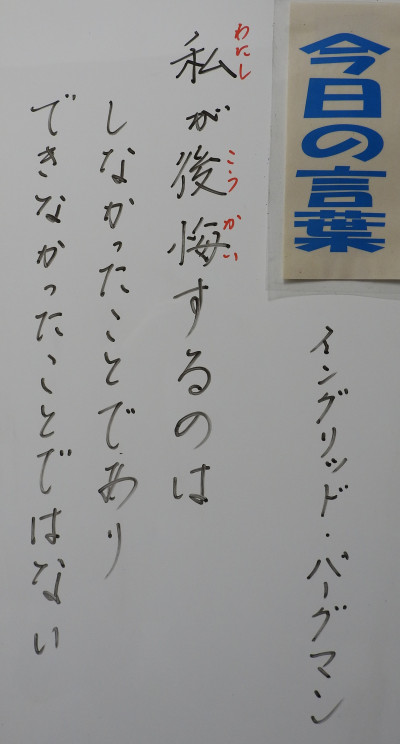 今日の言葉
イングリッド・バーグマン
私が後悔するのは
わたし
こう
かい
しなかったことであり
できなかったことではない